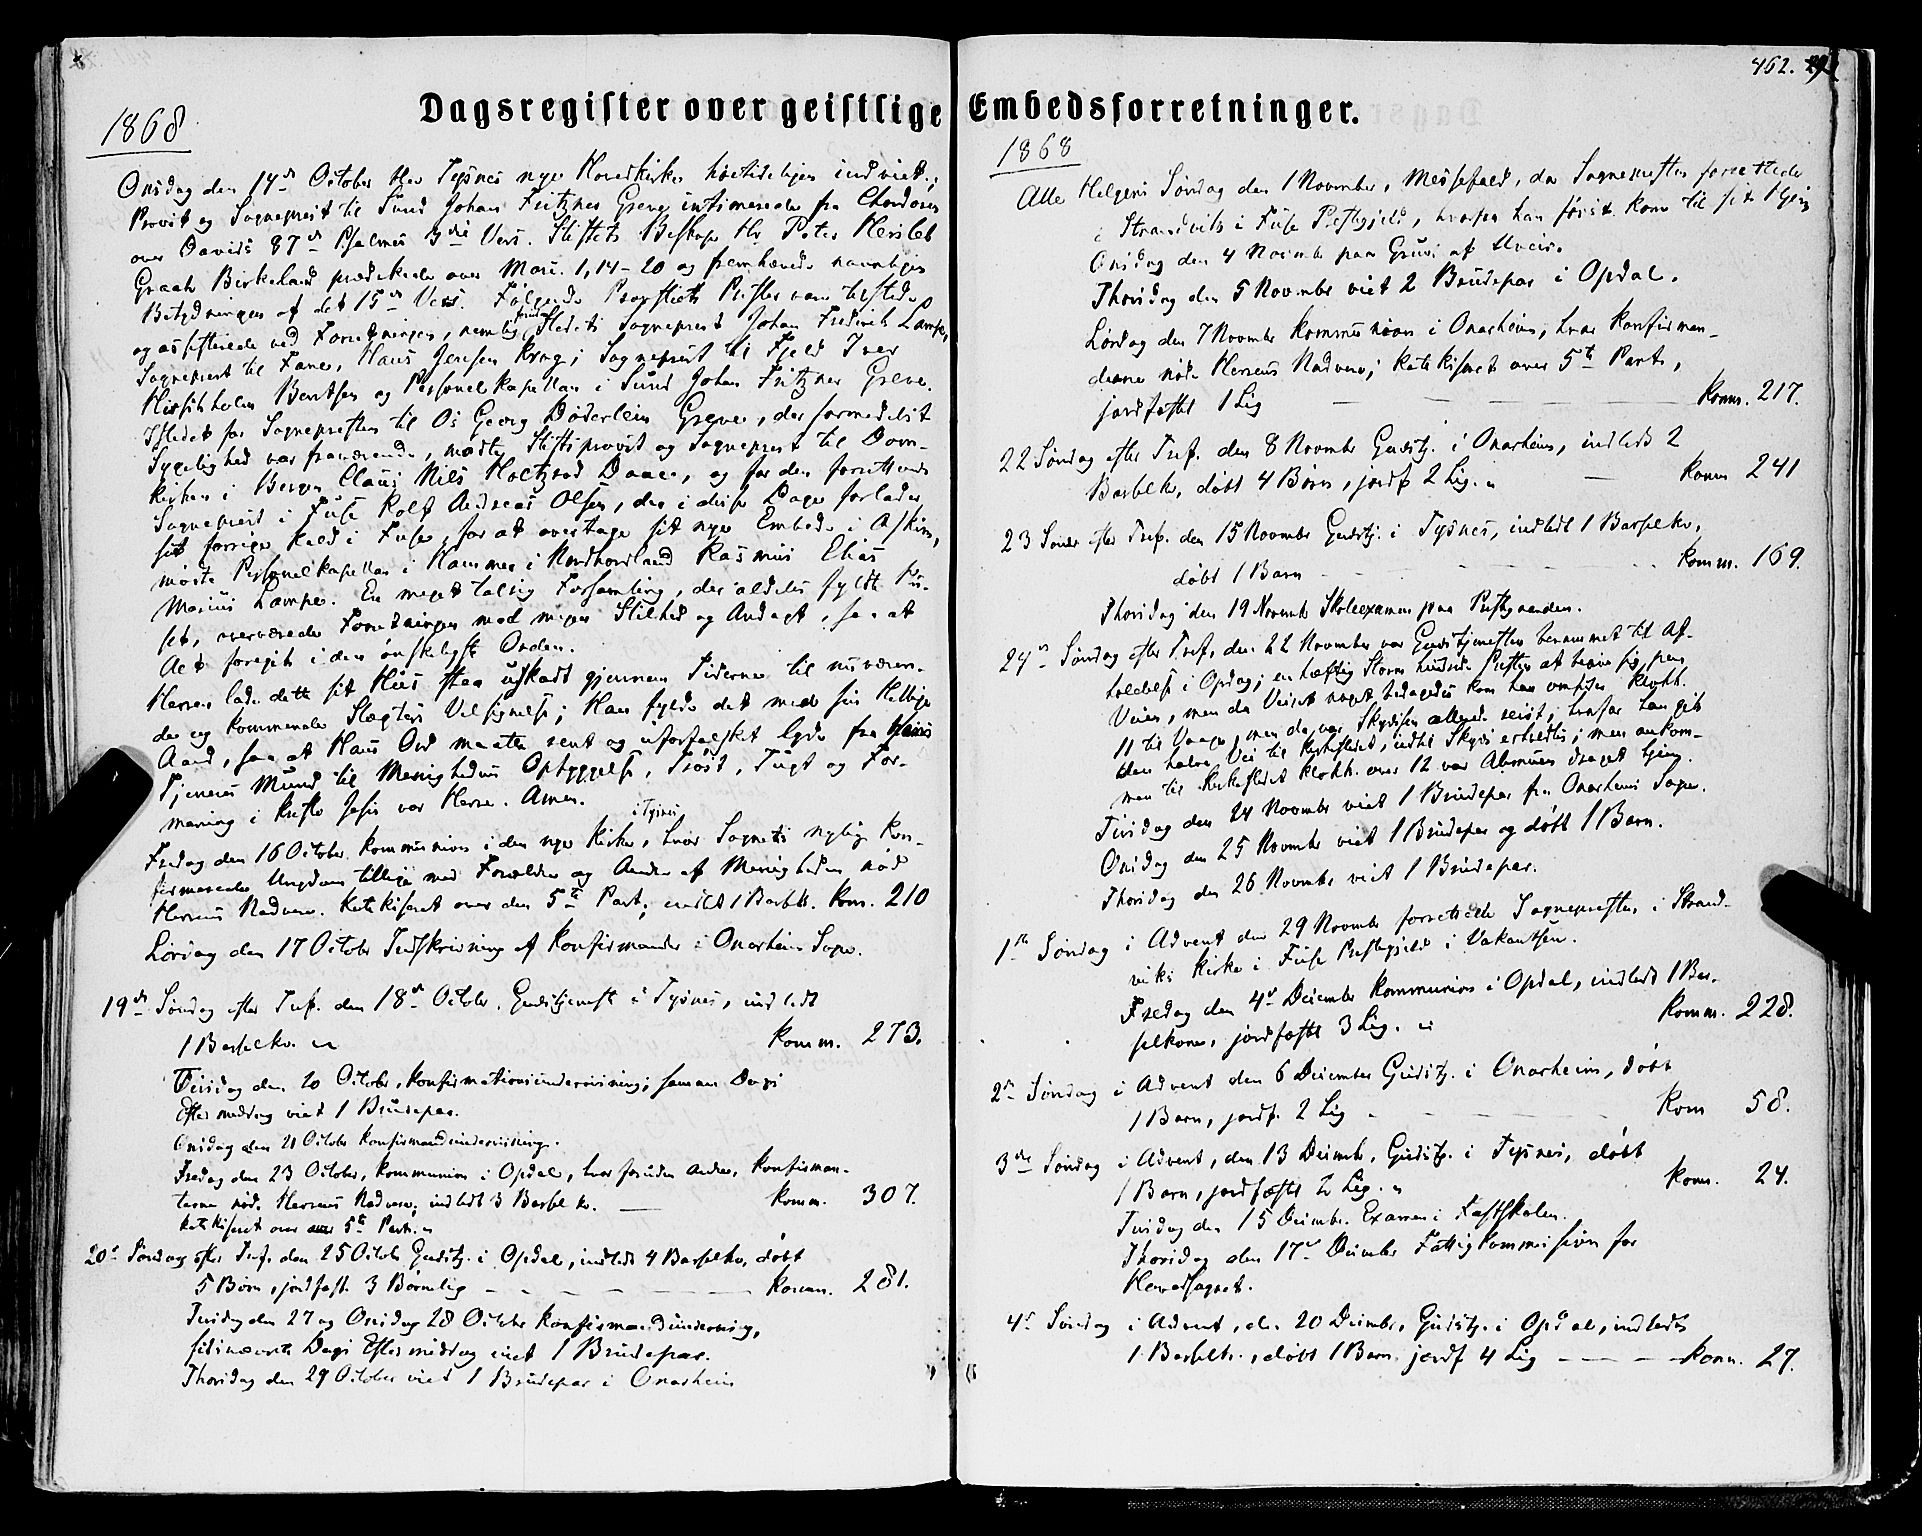 462.
Dagsregister over geistlige Embedsforretninger.
1868
Onsdag den 14de October blev Tysnes nye Hovedkirke høitideligen indviet;
Provst og Sognepræst til Sund Johan Fritzner Greve intimerede fra Chordøren
over Davids 87de Psalmes 3die Vers. Stiftets Biskop Hr Peter Hersleb
Graah Birkeland prædikede over Marc. 1,14-20 og fremhævede navnligen
Betydningen af det 15de Vers. Følgende Provstiets Præster vare tilstede
og assisterede ved Forretningen, nemlig Stedets Sognepræst Johan Frederik Lampe,
Sognepræst til Fane, Hans Jensen Krog; Sognepræst til Fjeld Iver
Hirschholm Berntsen og Personelkapellan i Sund Johan Fritzner Greve.
Istedet for Sognepræsten til Os Georg Døderlein Greve, der formedelst
Sygelighed var fraværende, mødte Stiftsprovst og Sognepræst til Dom-
kirken i Bergen Claus Nils Holtzod Daae, og for den forrettende
Sognepræst i Fuse Rolf Andreas Olsen, der i disse Dage forlader
sit forrige Kald i Fuse, for at overtage sit nye Embede i Askim,
mødte Personelkapellan i Hammer i Nordhordland Rasmus Elias
Marius Lampe. En meget talrig Forsamling, der aldeles fyldte Hu-
set, overværede Forretningen med megen Stilhed og Andagt, saa at
Alt foregik i den ønskeligste Orden.
Herren lade dette sit Hus staa uskadt gjennem Tiderne til nuværen-
de og kommende Slægters Velsignelse; Han fylde det med sin Hellige
Aand, saa at Hans Ord maatte rent og uforfalsket lyde fra Hans
Tjeneres Mund til Menighedens Opbyggelse, Trøst, Tugt og For-
maning i Christo Jesu vor Herre. Amen.
Fredag den 16 October Kommunion i den nye Kirke i Tysnes, hvor Sognets nylig kon-
firmerede Ungdom tillige med Forældre og Andre af Menigheden nød
Herrens Nadvere. Katekiseret over den 5te Part; indledt 1 Barselk. Kom. 210
Lørdag den 17 October Indskrivning af Konfirmander i Onarheims Sogn.
19de Søndag efter Tref. den 18de October. Gudstjeneste i Tysnes, indledt
1 Barselko. Komm. 273.
Tirsdag den 20 Octobr. Konfirmationsundervisning; samme Dags
Eftermiddag viet 1 Brudepar.
Onsdag den 21 Octobr Konfirmandundervisning.
Fredag den 23 October, Kommunion i Opdal, hvor foruden Andre, Konfirman-
terne nød Herrens Nadvere; indledt 3 Barselko. Komm. 307.
Katekiseret over 5te Part.
20de Søndag efter Tref. den 25 Octobr Gudstj. i Opdal, indledt 4 Barselko, døbt
5 Børn, jordfæst. 3 Børnelig Komm. 281.
Tirsdag den 27 og Onsdag 28 Octobr Konfirmandundervisning,
sidstnævnte Dags Eftermiddag viet 1 Brudepar.
Thorsdag den 29 October viet 1 Brudepar i Onarheim
1868
Alle Helgens Søndag den 1 November, Messefald, da Sognepræsten forrettede
i Strandvik i Fuse Præstegjeld, hvorfra han først kom til sit Hjem
Onsdag den 4 Novembr paa Grund af Uveir.
Thorsdag den 5 Novembr viet 2 Brudepar i Opdal.
Lørdag den 7 Novembr Kommunion i Onarheim, hvor Konfirman-
derne nøde Herrens Nadvere; katekiseret over 5te Part,
jordfæstet 1 Lig Komm. 217.
22 Søndag efter Tref. den 8 Novembr Gudstj. i Onarheim, indledt 2
Barselko, døbt 4 Børn, jordf. 2 Lig. Komm 241
23 Søndag efter Tref. den 15 Novembr Gudstj. i Tysnes, indledt 1 Barselko,
døbt 1 Barn Komm. 169.
Thorsdag den 19 Novembr Skoleexamen paa Præstegaarden.
24de Søndag efter Tref. den 22 November var Gudstjenesten berammet til Af-
holdelse i Opdal; en hæftig Storm hindrede Præsten at begive sig paa
Veien, men da Veiret noget bedagedes kom han omtrent Klokk.
11 til Vaage, men da var Skydsen allerede reist, hvorfor han gik
den halve Vei til Kirkestedet, indtil Skyds erholdtes; men ankom-
men til Kirkestedet Klokk. over 12 var Almuen draget hjem.
Tirsdag den 24 Novembr viet 1 Brudepar fra Onarheims Sogn.
Onsdag den 25 Novembr viet 1 Brudepar og døbt 1 Barn.
Thorsdag den 26 Novembr viet 1 Brudepar.
1ste Søndag i Advent den 29 Novembr forrettede Sognepræsten i Strand-
viks Kirke i Fuse Præstegjeld i Vakantsen.
Fredag den 4de December Kommunion i Opdal, indledt 1 Bar-
selkone, jordfæstet 3 Lig. Komm. 228.
2den Søndag i Advent den 6 December Gudstj. i Onarheim, døbt
1 Barn, jordf. 2 Lig Kom 58.
3die Søndag i Advent, den 13 Decembr, Gudstj. i Tysnes, døbt
1 Barn, jordfæstet 2 Lig. Kom. 24.
Tirsdag den 15 Decembr. Examen i Fastskolen.
Thorsdag den 17de Decembr Fattigkommission for
Hovedsognet.
4de Søndag i Advent, den 20 Decembr, Gudstj. i Opdal, indledt
1 Barselk., døbt 1 Barn, jordf 4 Lig Komm. 27.